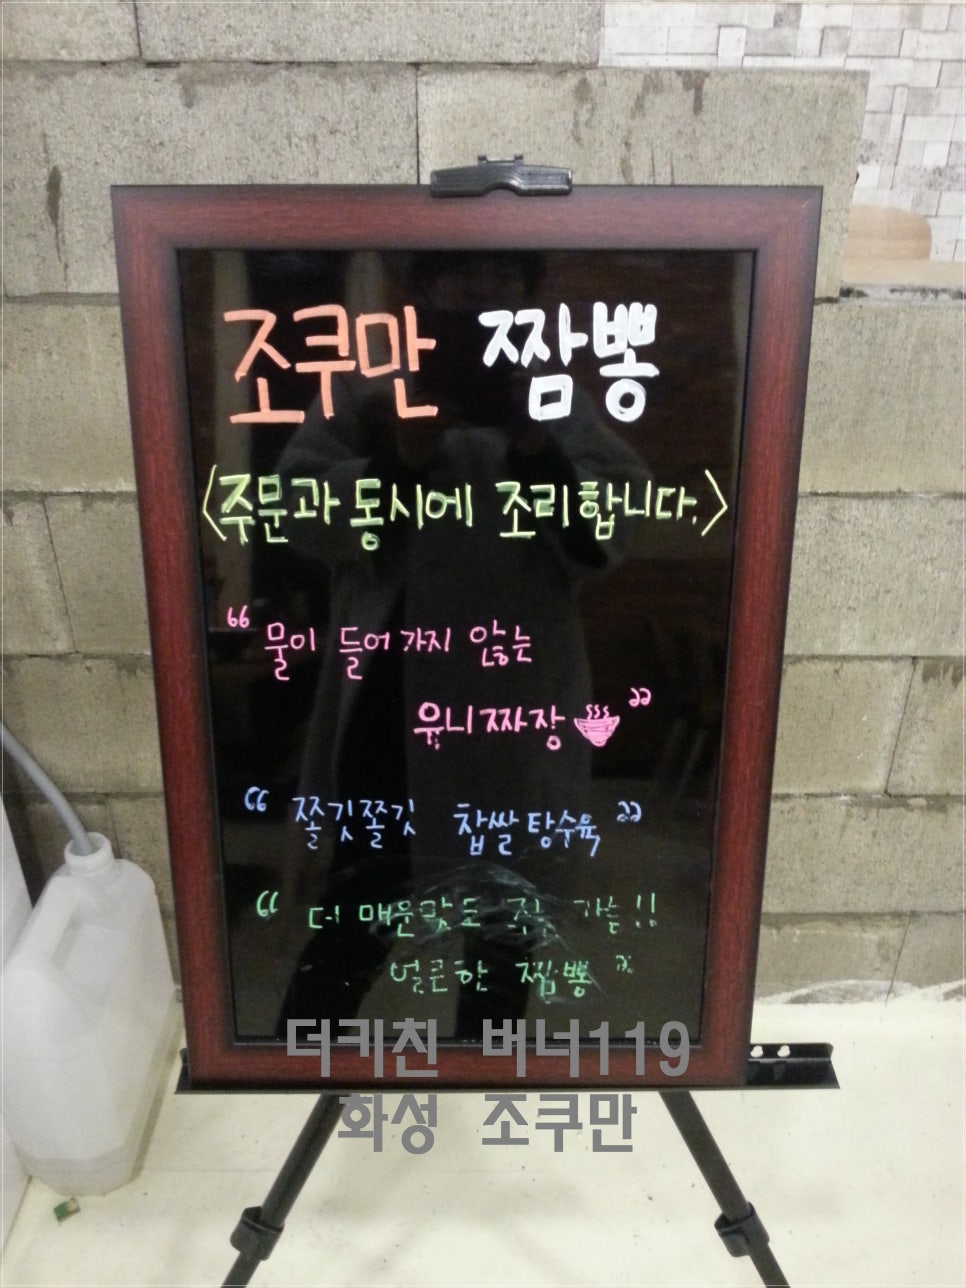 조쿠만 짬뽕
<주문과 동시에 조리합니다.>
“ 물이 들어가지 않는
유니짜장 ”
“ 쫄깃쫄깃 찹쌀탕수육 ”
“ 더 매운맛도 가능!!
얼큰한 짬뽕 ”
더키친 버너119
화성 조쿠만